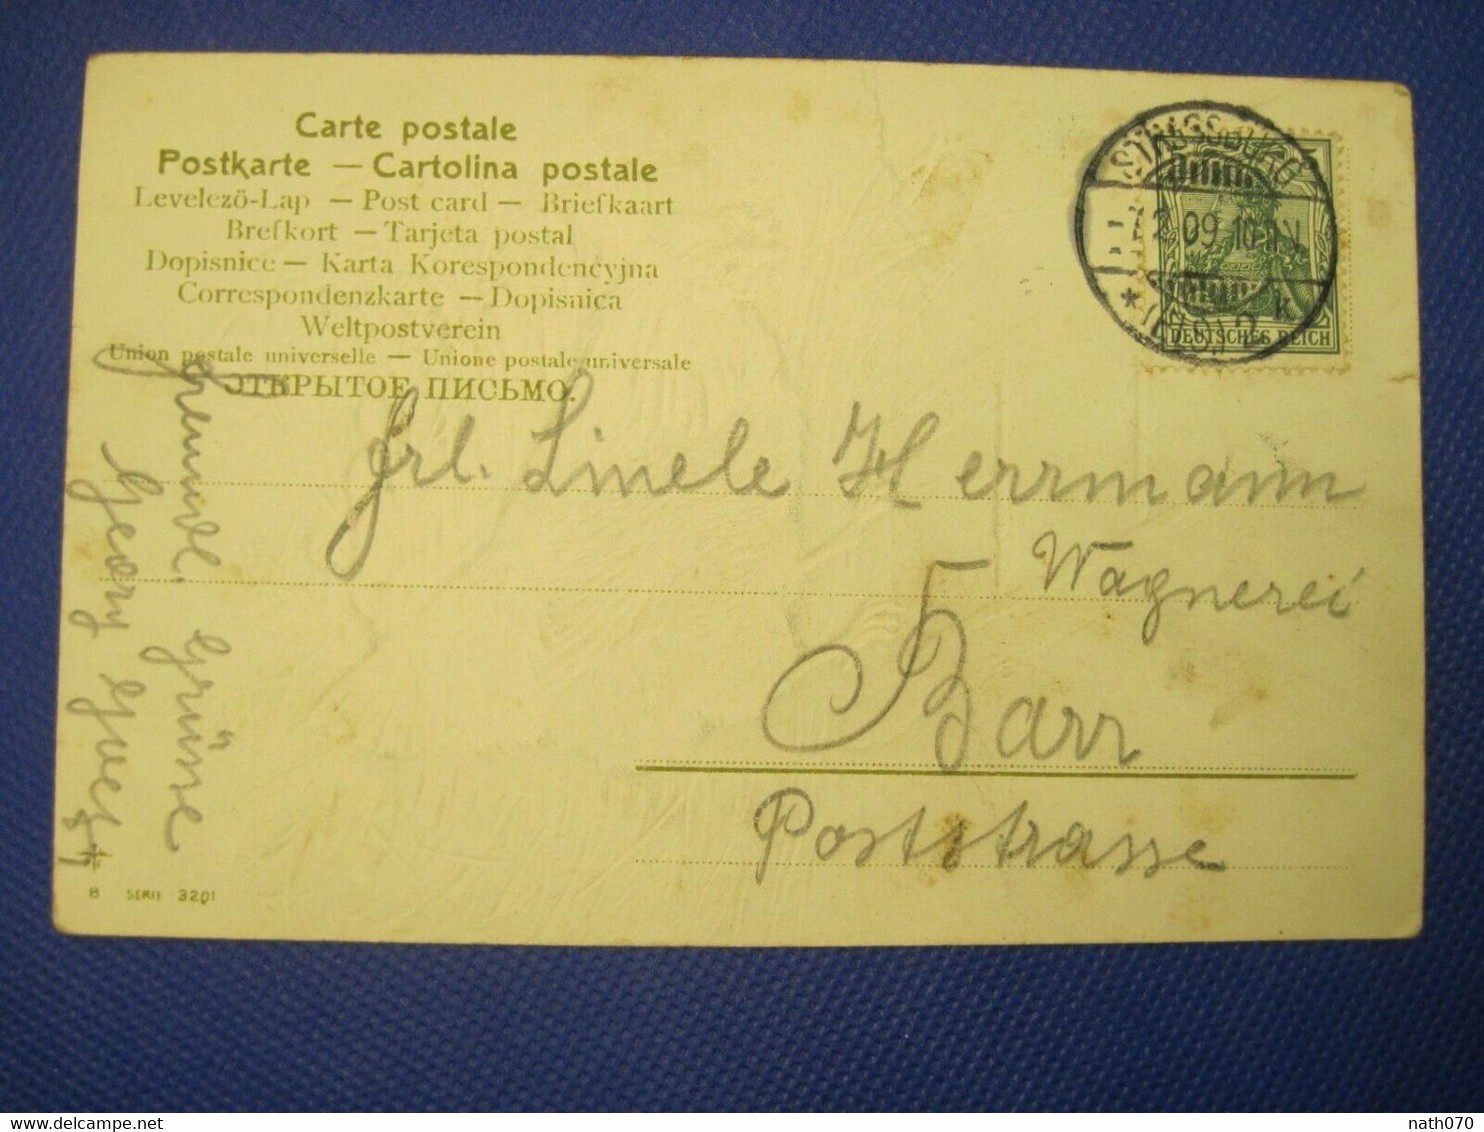 Carte postale
Postkarte — Cartolina postale
Levelező-Lap — Post card — Briefkaart
Brefkort — Tarjeta postal
Dopisnice — Karta Korespondencyjna
Correspondenzkarte — Dopisnica
Weltpostverein
Union postale universelle — Unione postale universale
ОТКРЫТОЕ ПИСЬМО.
STRASSBURG
2.09.10-11V
* (ELS.) 2 k
5
DEUTSCHES REICH
Frl. Linele Herrmann
Wagnerei
Barr
Poststrasse
Freundl. Grüsse
Georg
B SERIE 3201
delcampe.net
nath070